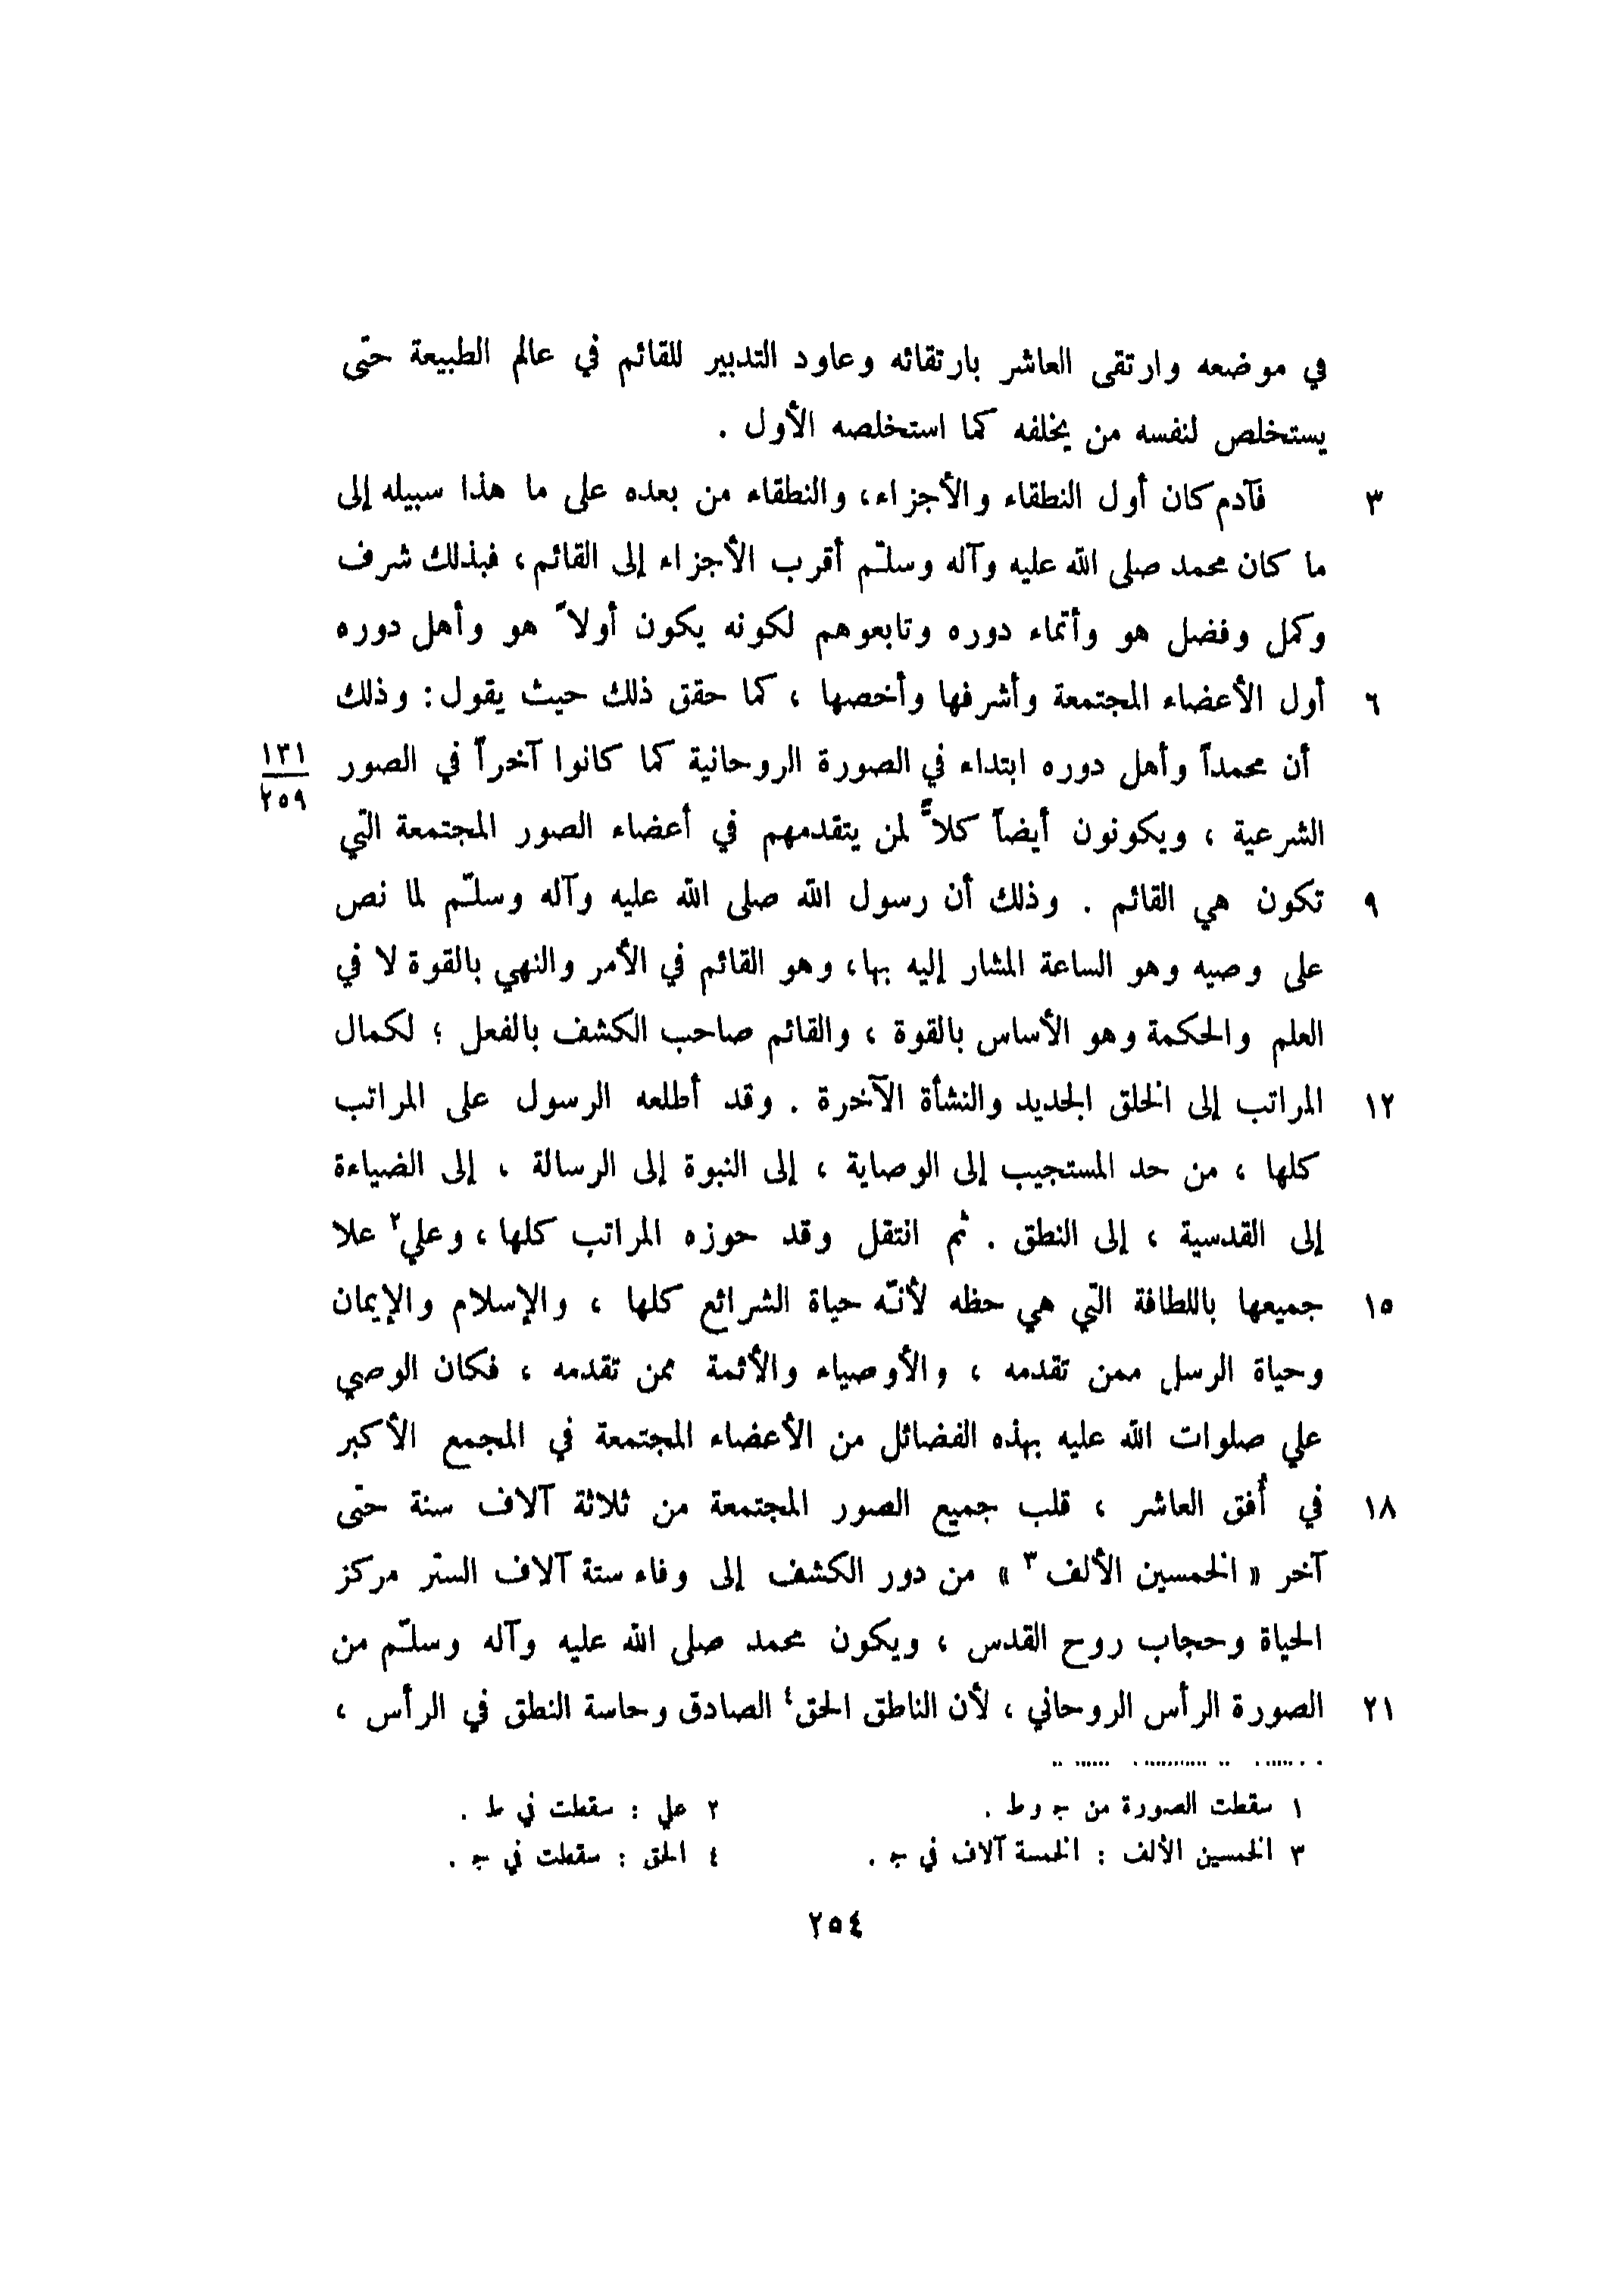 في موضعه وارتقى العاشر بارتقائه وعاود التدبير للقائم في عالم الطبيعة حتّى
يستخلص لنفسه من يخلفه كما استخلصه الأول .
٣ فآدم كان أول النطقاء والأجزاء، والنطقاء من بعده على ما هذا سبيله إلى
ما كان محمد صلى الله عليه وآله وسلّم أقرب الأجزاء إلى القائم، فبذلك شرف
وكمل وفضل هو وأتماء دوره وتابعوهم لكونه يكون أولاً هو وأهل دوره
٦ أول الأعضاء المجتمعة وأشرفها وأخصها ، كما حقق ذلك حيث يقول: وذلك
أن محمداً وأهل دوره ابتداء في الصورة الروحانية كما كانوا آخراً في الصور
١٣١
٢٥٩
الشرعية ، ويكونون أيضاً كلاًّ لمن يتقدمهم في أعضاء الصور المجتمعة التي
٩ تكون هي القائم . وذلك أن رسول الله صلى الله عليه وآله وسلّم لما نص
على وصيه وهو الساعة المشار إليه بها، وهو القائم في الأمر والنهي بالقوة لا في
العلم والحكمة وهو الأساس بالقوة ، والقائم صاحب الكشف بالفعل ؛ لكمال
١٢ المراتب إلى الخلق الجديد والنشأة الآخرة . وقد أطلعه الرسول على المراتب
كلها ، من حد المستجيب إلى الوصاية ، إلى النبوة إلى الرسالة ، إلى الضياءة
إلى القدسية ، إلى النطق . ثم انتقل وقد حوزه المراتب كلها ، وعلي٢ علا
١٥ جميعها باللطافة التي هي حظه لأنّه حياة الشرائع كلها ، والإسلام والإيمان
وحياة الرسل ممن تقدمه ، والأوصياء والأئمة ممن تقدمه ، فكان الوصي
علي صلوات الله عليه بهذه الفضائل من الأعضاء المجتمعة في المجمع الأكبر
١٨ في أُفق العاشر ، قلب جميع الصور المجتمعة من ثلاثة آلاف سنة حتّى
آخر « الخمسين الألف٣ » من دور الكشف إلى وفاء ستة آلاف الستر مركز
الحياة وحجاب روح القدس ، ويكون محمد صلى الله عليه وآله وسلّم من
٢١ الصورة الرأس الروحاني ، لأن الناطق الحق٤ الصادق وحاسة النطق في الرأس ،
١ سقطت الصورة من ج وط .
٢ علي : سقطت في ط .
٣ الخمسين الألف : الخمسة آلاف في ج .
٤ الحق : سقطت في ج .
٢٥٤